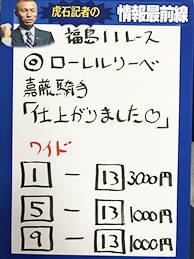 虎石記者の
情報最前線
福島11レース
◎ローレルリーベ
嘉藤騎手
「仕上がりました♡」
ワイド
1 — 13 3000円
5 — 13 1000円
9 — 13 1000円